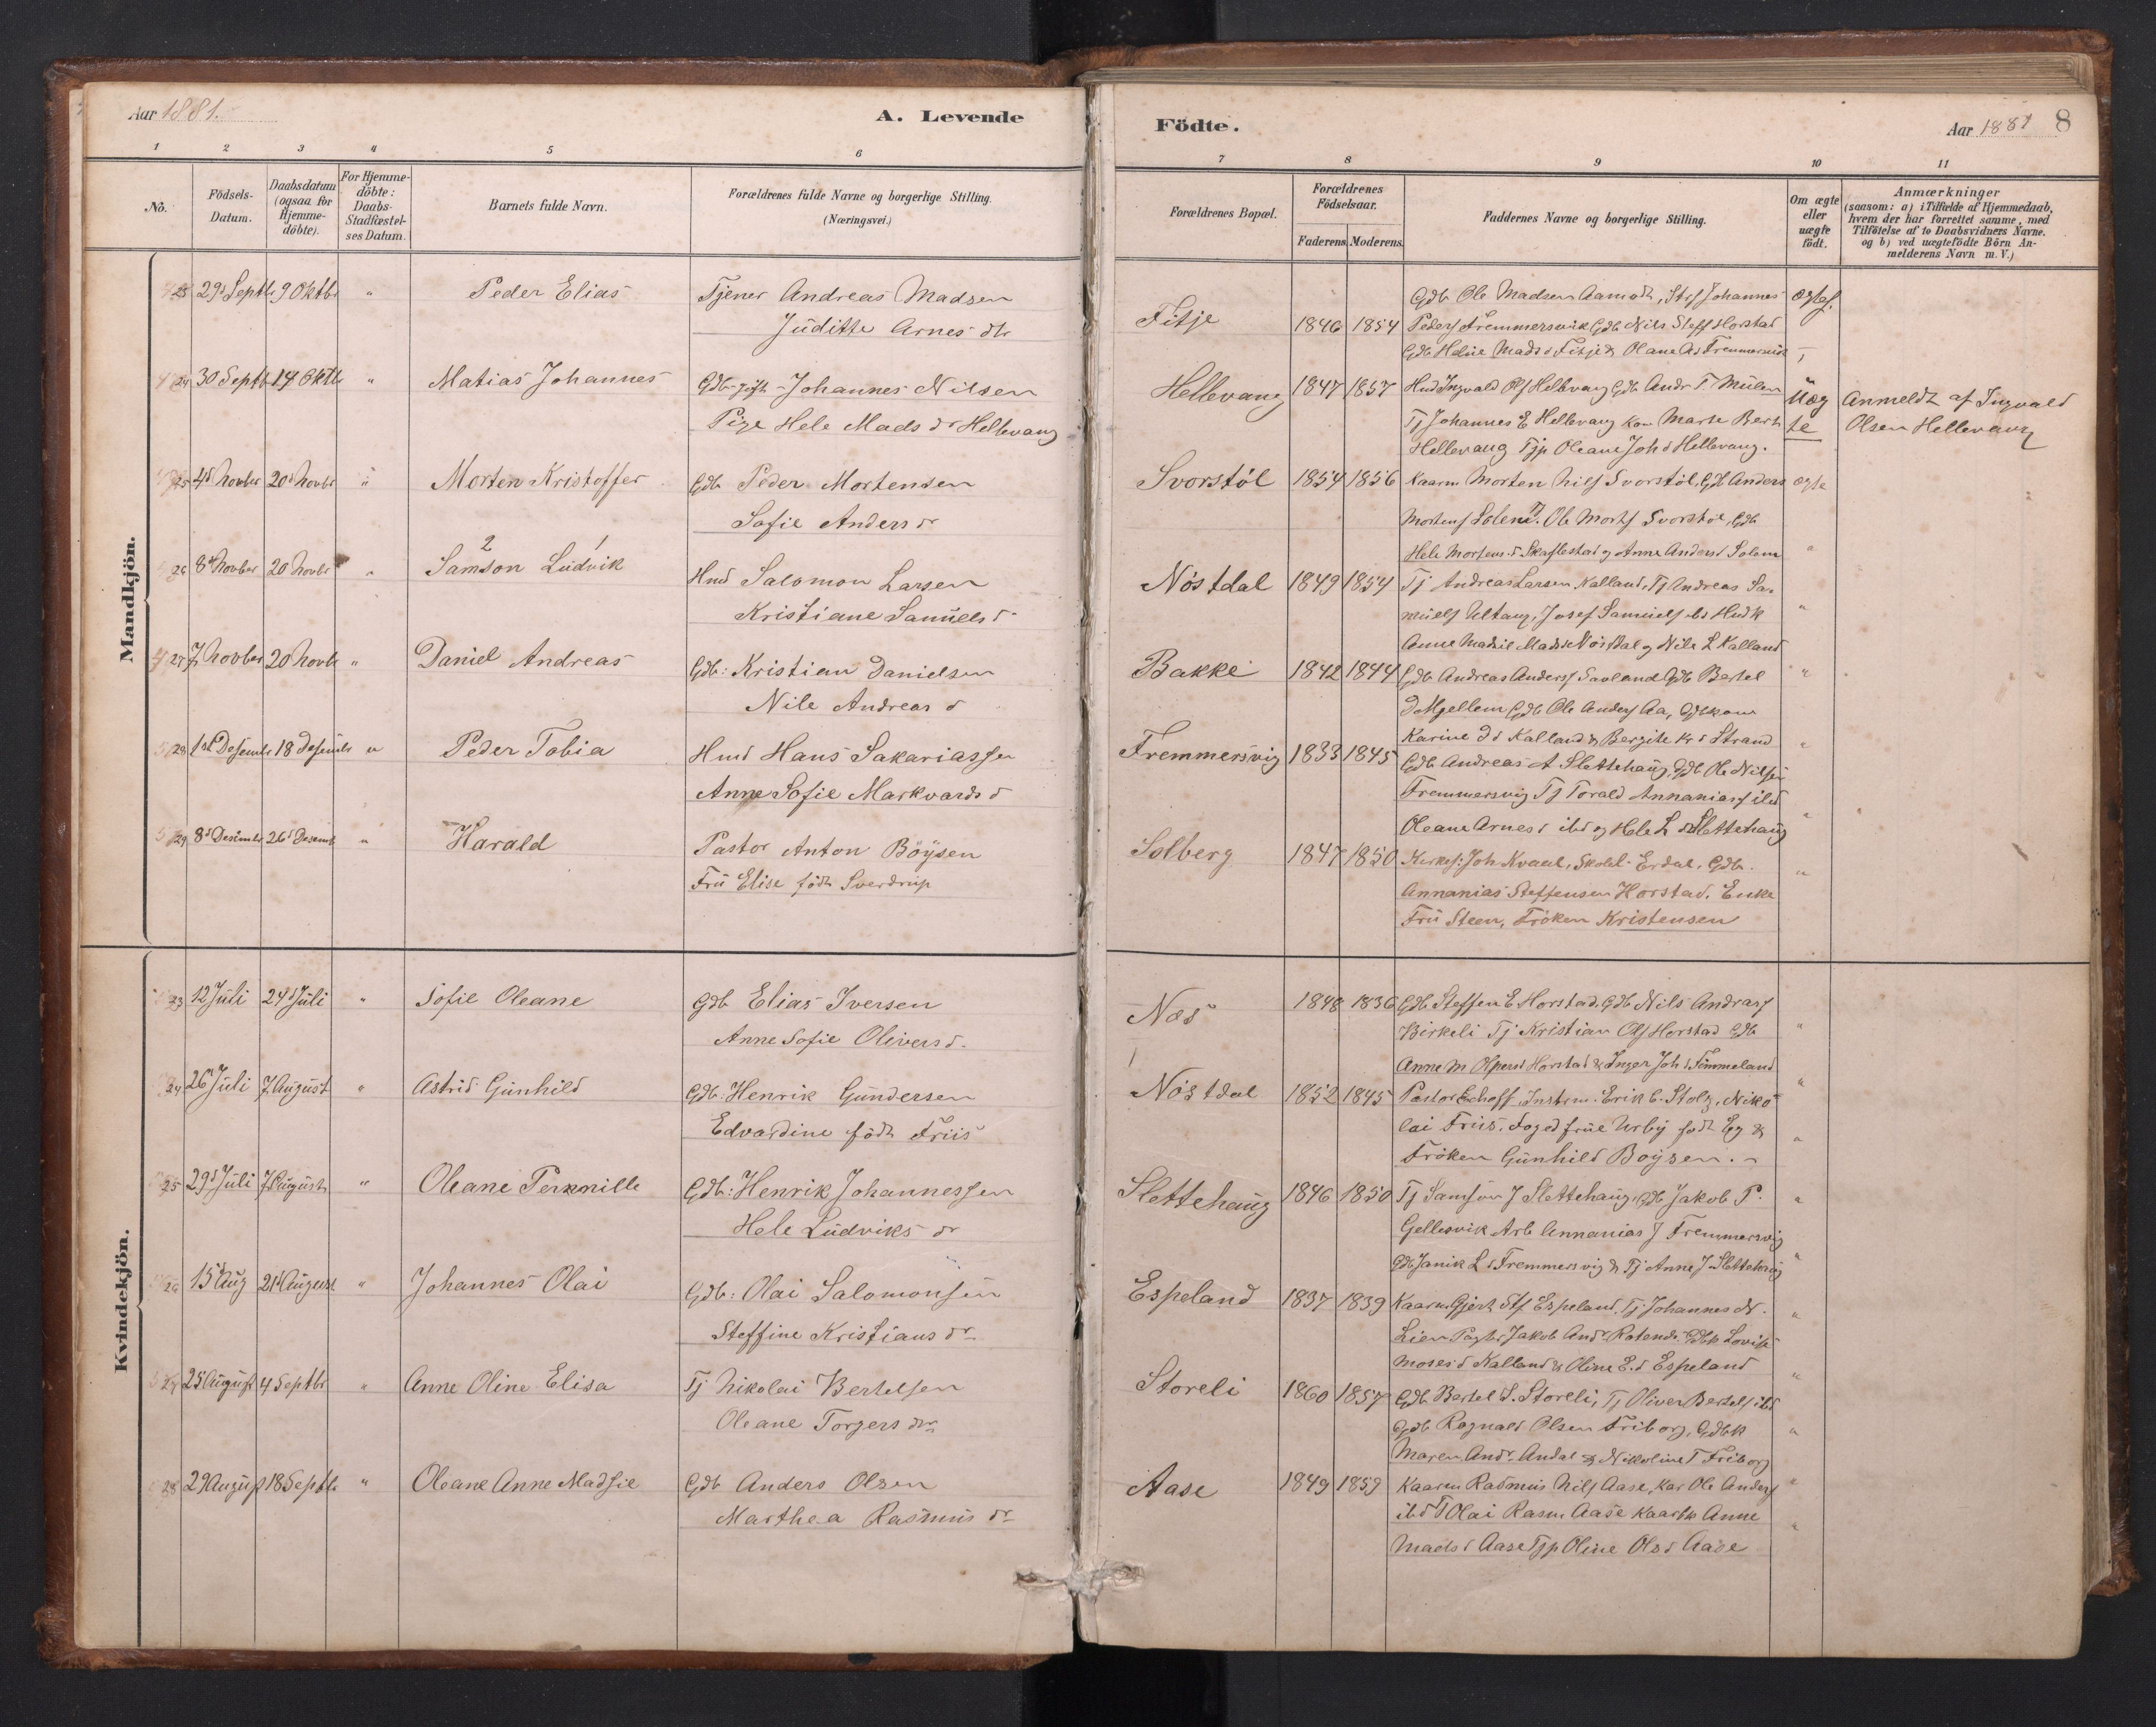 Aar 1881.
A. Levende
Födte.
Aar 1881
8
1 2 3 4 5 6
7 8 9 10 11
No.
Födsels-Datum.
Daabsdatum (ogsaa for Hjemme-döbte).
For Hjemme-döbte: Daabs-Stadfæstel-ses Datum.
Barnets fulde Navn.
Forældrenes fulde Navne og borgerlige Stilling.
(Næringsvei.)
Forældrenes Bopæl.
Forældrenes Födselsaar.
Faderens. Moderens.
Faddernes Navne og borgerlige Stilling.
Om ægte eller uægte födt.
Anmærkninger
(saasom: a) i Tilfælde af Hjemmedaab,
hvem der har forrettet samme, med
Tilföielse af to Daabsvidners Navne.
og b) ved uægtefödte Börn An-
melderens Navn m. V.)
Mandkjön.
23 29d Septb 9 Oktbr " Peder Elias Tjener Andreas Madsen
Juditte Arnes dtr
Fitje 1846 1854 Gdb Ole Madsen Aamodt, Johannes
Peders Fremmersvik Gdb Nils Steff Horstad
Gdb Heline Mads d Fitje & Oleane As Fremmersvik
24 30 Septb 14 Oktb " Matias Johannes Gdb-gift-Johannes Nilsen
Pige Hele Mads dr Hellevang
Hellevang 1847 1857 Hmd Ingvald Ols Hellevang Gdb Andr T. Mülen
Tj Johannes E Hellevang Kone Marte Bert
Hellevang Tjp Oleane Joh d Hellevang.
Uæg
te
Anmeldt af Ingvald
Olsen Hellevang
25 4d Novbr 20d Novbr " Morten Kristoffer Gdb Peder Mortensen
Sofie Anders dr
Svorstöl 1854 1856 Kaarm Morten Nils Svorstöl, Gdb Anders ægte
Mortens Solem. Ole Morts Svorstöl, Gdb
Hele Mortens d Skaflestad og Anne Anders d Solem
26 8d Novber 20 Novbr " Samson Ludvik Hmd Salomon Larsen
2 1
Kristiane Samuels d
Nöstdal 1849 1854 Tj Andreas Larsen Kalland, Tj Andreas Sa-
muels Ultang, Josef Samuels ibd Hmdk
Anne Madsie Mads d Nöstdal og Nile L Kalland
27 7 Novber 20 Novb " Daniel Andreas Gdb: Kristian Danielsen
Nile Andreas d
Bakke 1842 1844 Gdb Andreas Anders Savland Gdb Bertel
D Mjellem Gdb Ole Anders Aa, Gdbkone
Karine D d Kalland & Bergite Kr d Strand
28 1st Desembr 18 Desembr " Peder Tobia Hmd Hans Sakariassen
Anne Sofie Markvards d
Fremmersvig 1833 1845 Gdb Andreas A Slettehaug, Gdb Ole Nilsen
Fremmersvig Tj Torald Annanias ibd
Oleane Arnes d ibd og Hele L d Slettehaug
29 8d Desember 26d Desemb " Harald Pastor Anton Böysen
Fru Elise födt Sverdrup
Solberg 1847 1850 Kirkes: Joh Kvaal, Skolel. Erdal, Gdb.
Annanias Steffensen Horstad. Enke
Fru Steen, Fröken Kristensen
Kvindekjön.
23 12 Juli 24d Juli " Sofie Oleane Gdb Elias Iversen
Anne Sofie Olivers d.
Næs 1848 1836 Gdb Steffen E Horstad, Gdb Nils Andreas
Birkeli Tj Kristian Ols Horstad Gdb
Anne M Horstad & Inger Joh d Tömmeland
24 26 Juli 7 August " Astrid Gunhild Gdb: Henrik Gundersen
Edvardine födt Friis
Nöstdal 1852 1845 Pastor Echoff, Instrm. Erik C. Stolz, Niko
lai Friis, Fogedfrue Urby født Eg &
Fröken Gunhild Boysen.
25 29d Juli 7 August " Oleane Perknille Gdb: Henrik Johannessen
Hele Ludviks dr
Slettehaug 1846 1850 Tj Samson J Slettehaug, Gdb Jakob P.
Gellesvik Arb Annanias J Fremmersvig
Gdb Janik L d Fremmersvig & Tj Anne J Slettehaug
26 15d Aug 21d August " Johannes Olai Gdb: Olai Salomonsen
Steffine Kristians dr
Espeland 1837 1839 Kaarm Gjert Stf Espeland, Tj Johannes N.
Lien Jakob Andr Gdbk Lovise
Moses d Kalland & Oline E. d Espeland
27 25 August 4 Septbr " Anne Oline Elisa Tj Nikolai Bertelsen
Oleane Torgers dr
Storeli 1860 1857 Gdb Bertel S. Storeli, Tj Oliver Bertels ibd
Gdb Ragnald Olsen Friborg, Gdbk
Maren Andr. Andal & Nikoline T Friborg
28 29 August 18 Septb " Oleane Anne Madsie Gdb Anders Olsen
Marthea Rasmus dr
Aase 1849 1859 Kaarm Rasmus Nils Aase, Kar Ole Anders
ibd T Olai Rasm Aase Kaarbk Anne
Mads d Aase Tjp Oline Ols d Aase